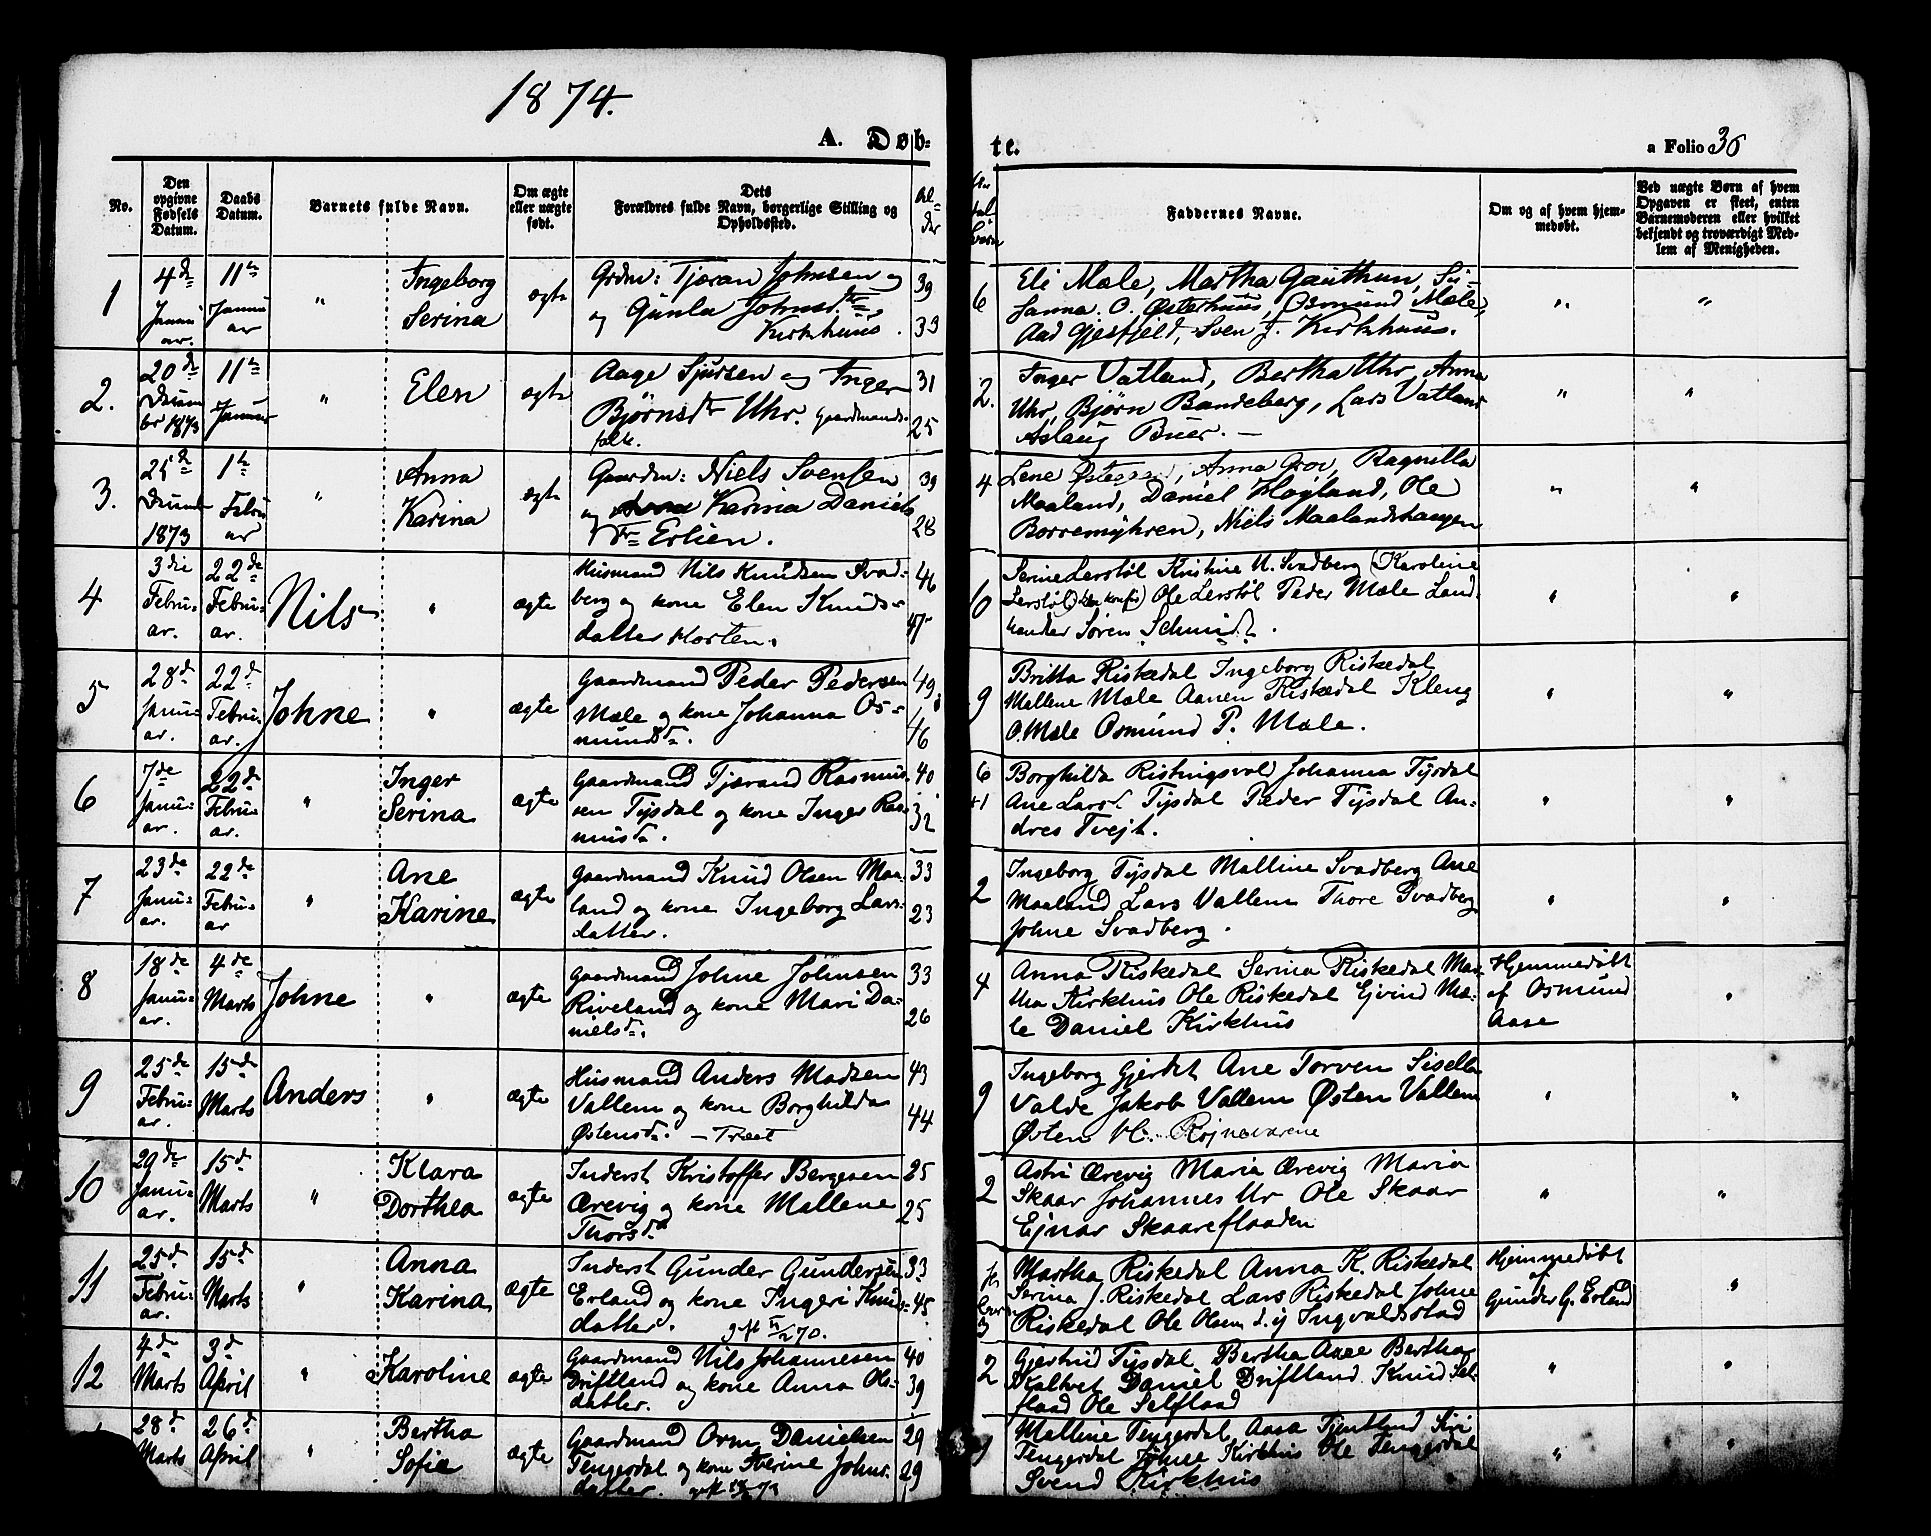 1874.
A. Døb-
te.
a Folio 36
No.
Den opgivne Fødsels Datum.
Daabs Datum.
Barnets fulde Navn.
Om ægte eller uægte født.
Dets Forældres fulde Navn, borgerlige Stilling og Opholdssted.
Al-
der
Faddernes Navne.
Om og af hvem hjem-
medøbt.
Ved uægte Børn af hvem
Opgaven er skeet, enten
Barnemoderen eller hvilket
bekjendt og troværdigt Med-
lem af Menigheden.
1
4de Januar.
11te Januar
"
Ingeborg
Serina
ægte
Grdm: Tjøran Johnsen og
og Gunla Johnsdtr
Kirkhuus.
39
33
6
Eli Mæle, Martha Gauthun, Su-
sanna O. Østerhuus, Osmund Mæle,
Aad Gjesfjeld, Sven J. Kirkhuus.
"
"
2.
20de
1873
11te Januar
"
Elen
ægte
Aage Sjursen og Inger
Bjørnsdtr Uhr. Gaardmands-
folk.
31
25
2.
Inger Vatland, Bertha Uhr, Anna
Uhr, Bjørn Bandeberg, Lars Vatland
Aslaug Buer. —
"
"
3.
25de
1873
1te Februar
"
Anna
Karina
ægte
Gaardm: Niels Svensen
og Karina Daniels
dtr Erlien.
39
28
4
Lene, Anna Grov, Ragnilla
Maaland, Daniel Høgland, Ole
Borremyhren, Niels Maalandshaugen
"
"
4
3die Februar.
22de Februar.
Nils
"
ægte
Husmand Nils Knudsen Svad-
berg og kone Elen Knuds-
datter Horten.
46
47
10
Serine Lerstøl Kristine N. Svadberg (Karoline
Lerstøl) Ole Lerstøl Peder Mæle Land-
handler Søren Schmidt.
"
"
5
28d Januar.
22d Februar.
Johne
"
ægte
Gaardmand Peder Pedersen
Mæle og kone Johanna Os-
mundsd.
49
46
9
Britta Riskedal Ingeborg Riskedal
Mallene Mæle Aanen Riskedal Kleng
O. Mæle Osmund P. Mæle.
"
"
6
7de Januar.
22de Februar.
"
Inger
Serina
ægte
Gaardmand Tjærand Rasmus-
sen Tysdal og kone Inger Ras-
musd.
40
32
6
+1
Borghilda Ristingsvold Johanna Tysdal
Ane Larsd. Tysdal Peder Tysdal An-
dres Tvejt.
"
"
7
23de Januar.
22de Februar
"
Ane
Karine
ægte
Gaardmand Knud Olsen Maa-
land og kone Ingeborg Lars-
datter.
33
23
2
Ingeborg Tysdal Malline Svadberg Ane
Maaland Lars Vallem Thore Svadberg
Johne Svadberg.
"
"
8
18de Januar.
4de Marts
Johne
"
ægte
Gaardmand Johne Johnsen
Riveland og kone Mari Da-
nielsd.
33
26
4
Anna Riskedal Serina Riskedal Mar-
tha Kirkhus Ole Riskedal Ejvind Mæ-
le Daniel Kirkhus
Hjemmedøbt
af Osmund
Aase
"
9
25de Februar.
15de Marts
Anders
"
ægte
Husmand Anders Madsen
Vallem og kone Borghilda
Østensd. — Træet
43
44
9
Ingeborg Gjerdet Ane Torven Sisella
Valde Jakob Vallem Østen Vallem
Østen
"
"
10
29de Januar.
15d Marts
"
Klara
Dorthea
ægte
Inderst Kristoffer Bergesen
Ørevig og kone Mallene
Thorsd.
25
25
2
Astri Ørevig Maria Ørevig Maria
Skaar Johannes Ur Ole Skaar
Ejnar Skaareflaaden
"
"
11
25d Februar.
15d Marts
"
Anna
Karina
ægte
Inderst Gunder Gundersen
Erland og kone Ingeri Knuds-
datter.
33
45
3
Martha Riskedal Anna K. Riskedal
Serina J. Riskedal Lars Riskedal Johne
Riskedal Ole Olsen Ingvaldsstad
Hjemmedøbt
af
Gunder G. Erland
"
12
4d Marts
3d April
"
Karoline
ægte
Gaardmand Nils Johannesen
Driftland og kone Anna Ols-
datter.
40
39
2
Gjertrud Tysdal Bertha Aase Bertha
Kaltvet Daniel Driftland Knud Sel-
flaad Ole Selflaad
"
"
28d Marts
26d April
"
Bertha
Sofie
ægte
Gaardmand Orm Danielsen
Tengerdal og kone Severine Johns-
datter.
29
29
Malline Tengerdal Aasa Tjentland Siri
Tengerdal Johne Kirkhus Ole Tengerdal
Svend Kirkhus
"
"